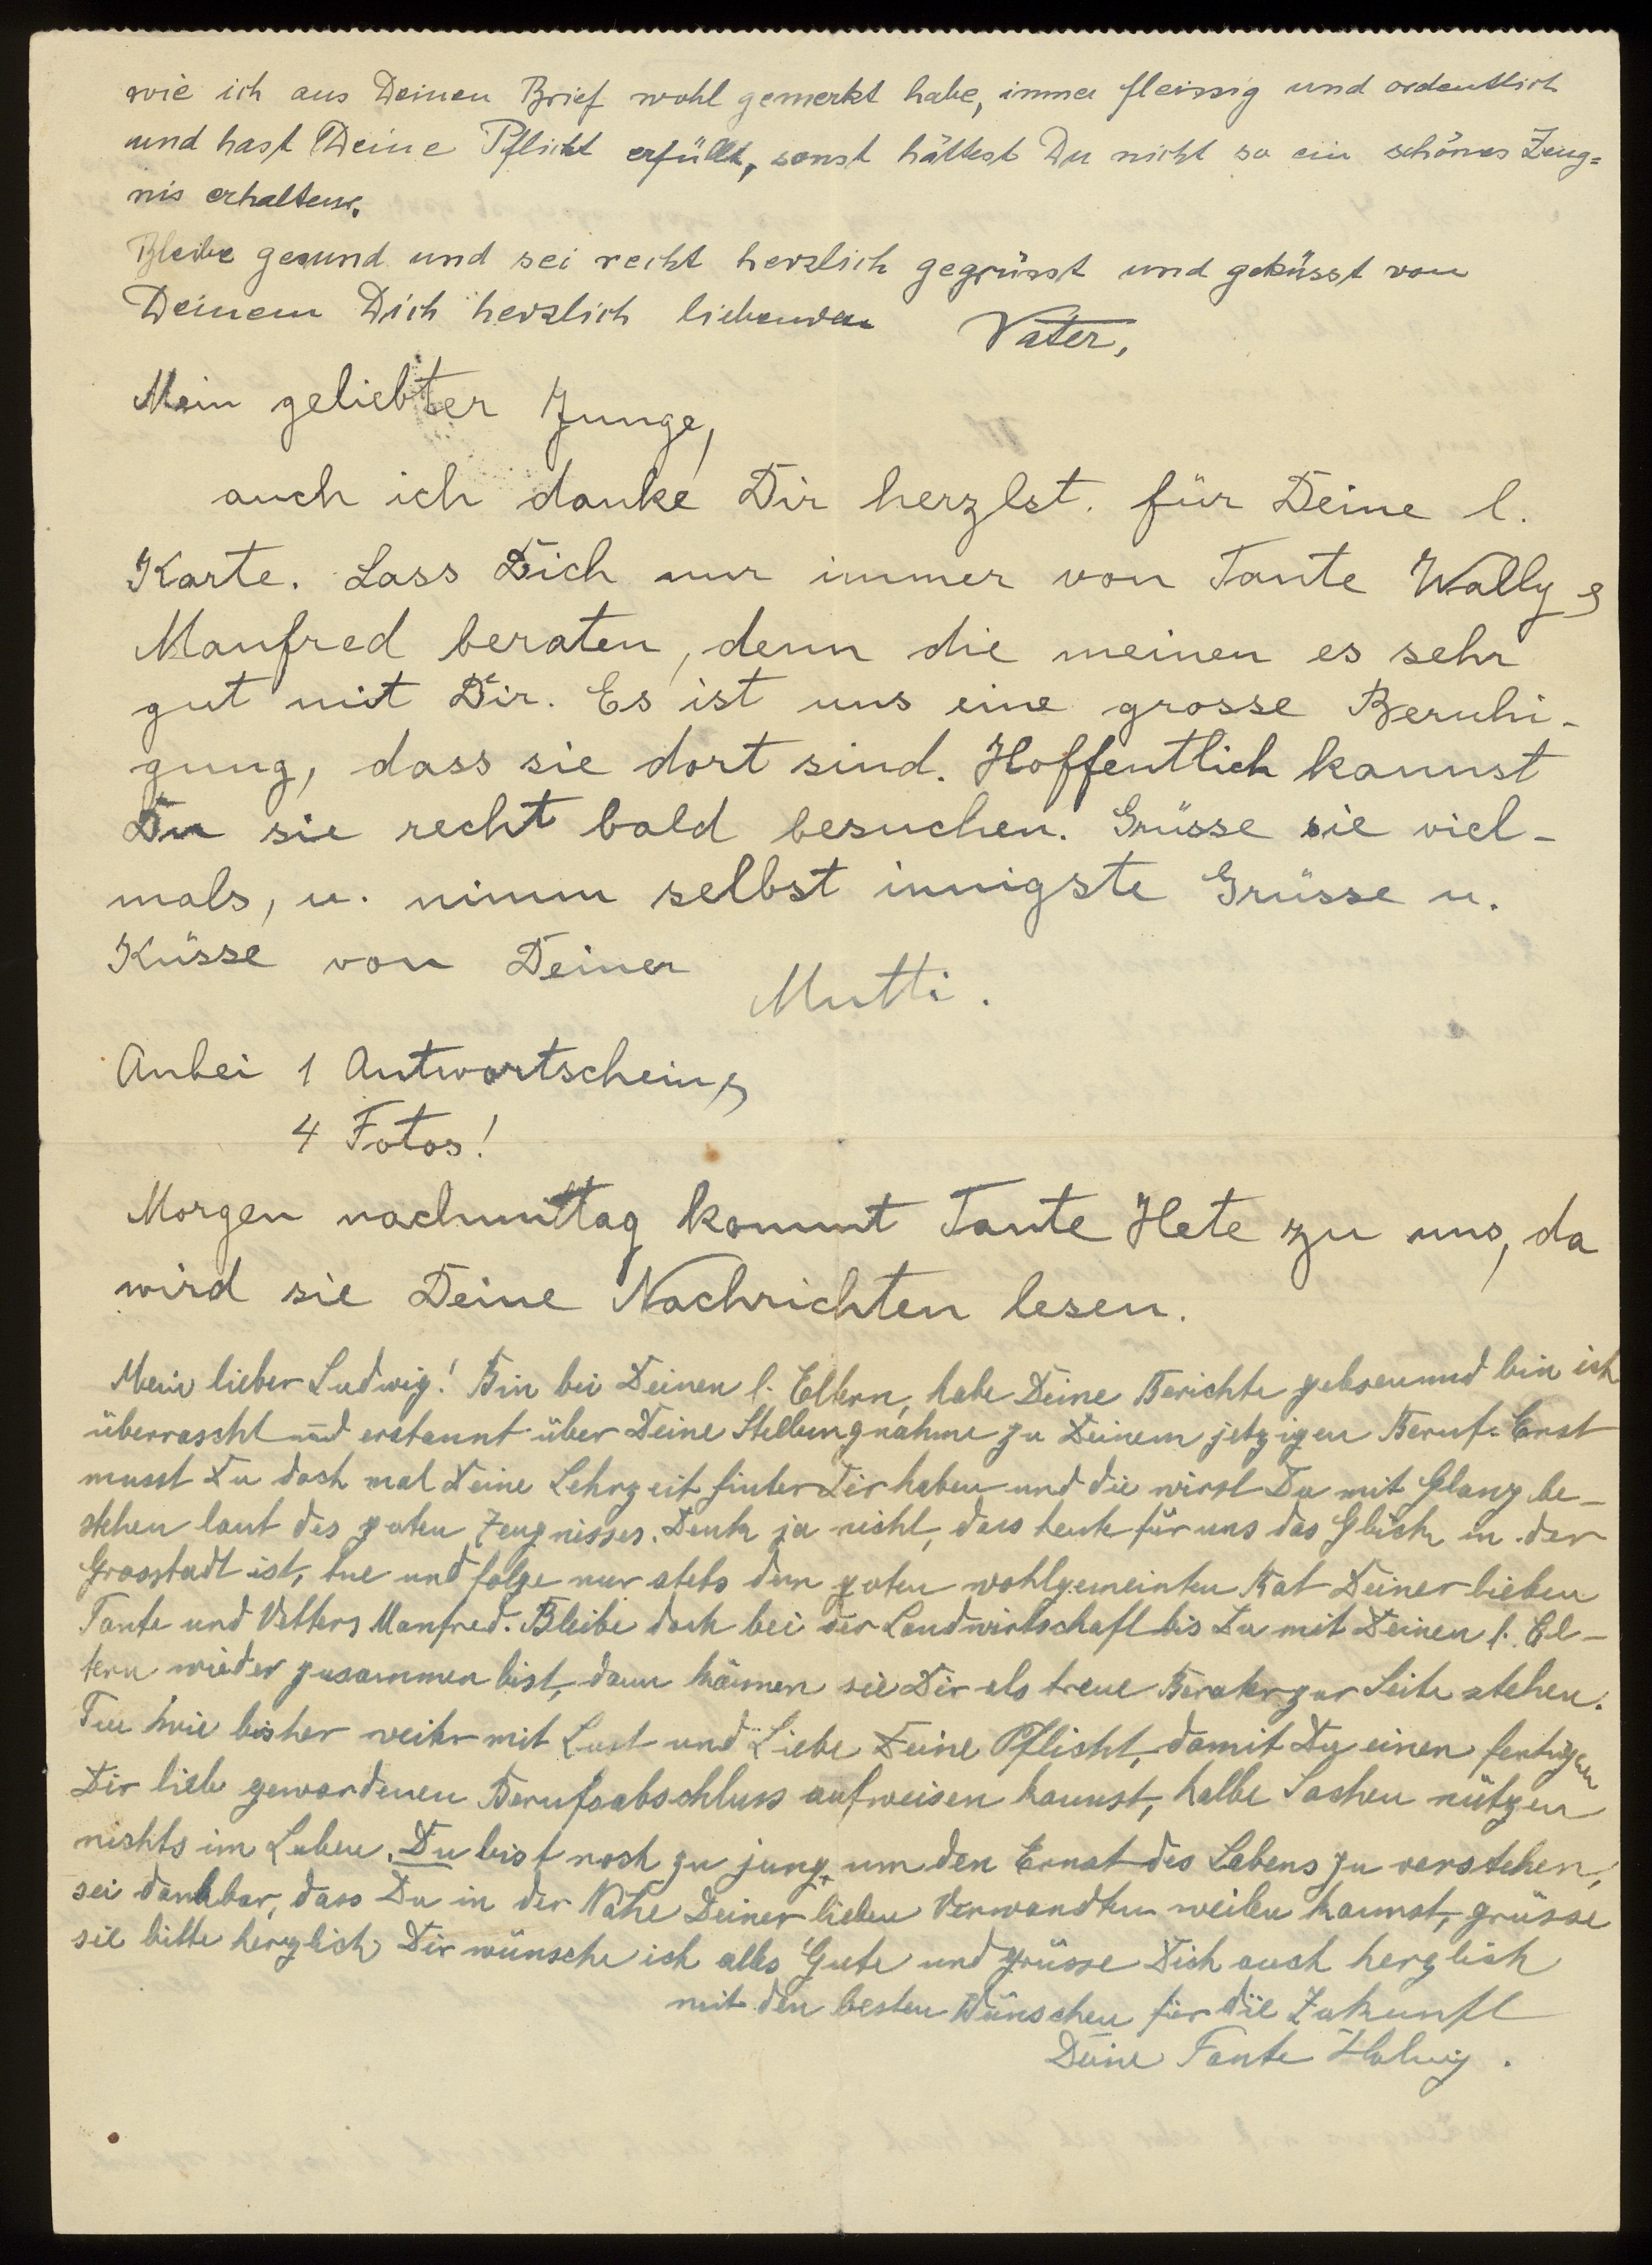 wie ich aus Deinen Brief wohl gemerkt habe, immer fleissig und ordentlich
und hast Deine Pflicht erfüllt, sonst hättest Du nicht so ein schönes Zeug=
nis erhalten.
Bleibe gesund und sei recht herzlich gegrüsst und geküsst von
Deinem Dich herzlich liebenden Vater,
Mein geliebter Junge,
auch ich danke Dir herzlst. für Deine l.
Karte. Lass Dich nur immer von Tante Wally &
Manfred beraten, denn die meinen es sehr
gut mit Dir. Es ist uns eine grosse Beruhi-
gung, dass sie dort sind. Hoffentlich kannst
Du sie recht bald besuchen. Grüsse sie viel-
mals, u. nimm selbst innigste Grüsse u.
Küsse von Deiner Mutti.
Anbei 1 Antwortschein &
4 Fotos!
Morgen nachmittag kommt Tante Hete zu uns, da
wird sie Deine Nachrichten lesen.
Mein lieber Ludwig! Bin bei Deinen l. Eltern, habe Deine Berichte gelesen und bin ich
überrascht und erstaunt über Deine Stellungnahme zu Deinem jetzigen Beruf. Erst
musst Du doch mal Deine Lehrzeit hinter Dir haben und die wirst Du mit Glanz be-
stehen laut des guten Zeugnisses. Denk ja nicht, dass heute für uns das Glück in der
Grosstadt ist, tue und folge nur stets dem guten wohlgemeinten Rat Deiner lieben
Tante und Vetters Manfred. Bleibe doch bei der Landwirtschaft bis Du mit Deinen l. El-
tern wieder zusammen bist, dann können sie Dir als treue Berater zur Seite stehen.
Tue wie bisher weiter mit Lust und Liebe Deine Pflicht, damit Du einen fertigen
Dir lieb gewordenen Berufsabschluss aufweisen kannst, halbe Sachen nützen
nichts im Leben. Du bist noch zu jung, um den Ernst des Lebens zu verstehen,
sei dankbar, dass Du in der Nähe Deiner lieben Verwandten weilen kannst, grüsse
sie bitte herzlich, Dir wünsche ich alles Gute und grüsse Dich auch herzlich
mit den besten Wünschen für die Zukunft
Deine Tante